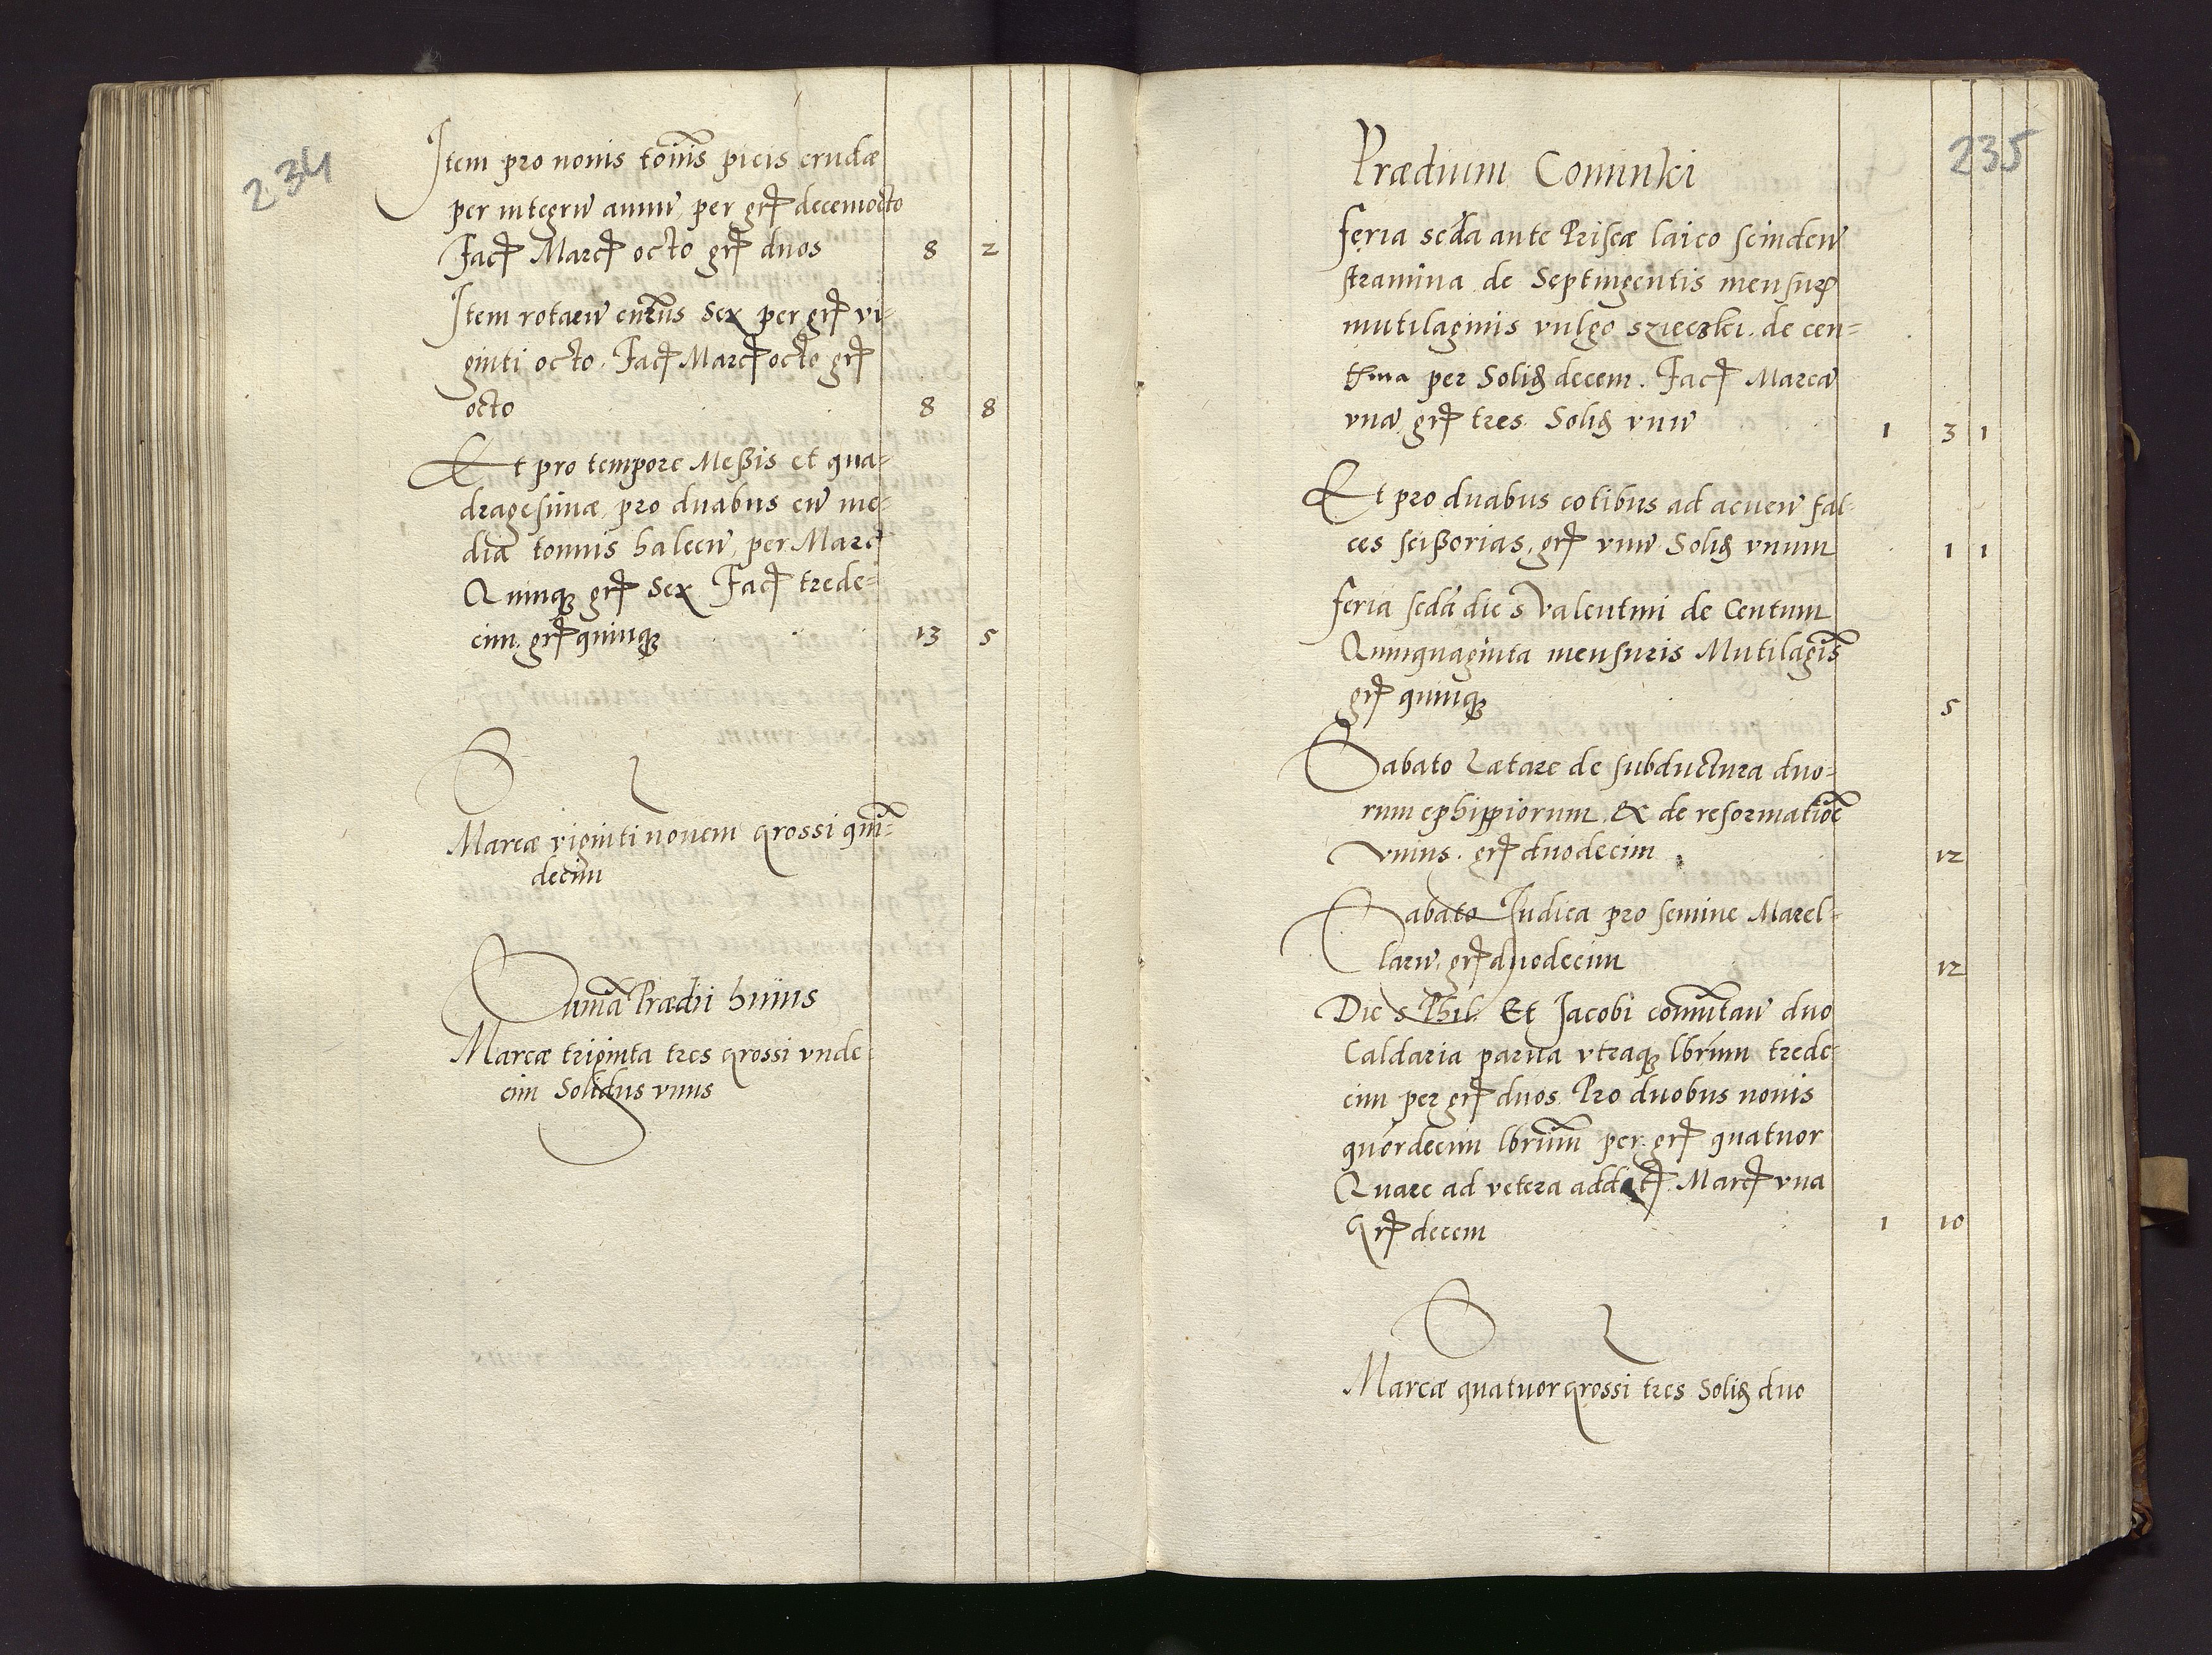 234
Item pro nonis tonis picis crudæ
per integrū annū, per grſ decemocto
Facſ Marcſ octo grſ duos 8 2
Item rotarū currus Sex per grſ vi=
ginti octo. Facſ Marcſ octo grſ
octo 8 8
Et pro tempore Meßis et qua=
dragesimæ, pro duabus cū me=
dia tonnis halecū, per Marcſ
Quinqꝫ grſ Sex Facſ trede=
cim, grſ quinqꝫ 13 5
S
Marcæ viginti novem grossi quin=
decim
Summa Prædii huius
Marcæ triginta tres grossi vnde=
cim Solidus vnus
235
Prædium Cominki
feria secda ante Priscæ laico scinden
stramina de Septingentis mensurſ
mutilaginis vulgo szieczki. de cen=
tena per Solið decem. Facſ Marcā
vnā, grſ tres Solið vnū 1 3 1
Et pro duabus cotibus ad acuen fal=
ces scißorias, grſ vnū Solið vnum 1 1
feria secda die s Valentini de Centum
Quinquaginta mensuris Mutilagis
grſ quinqꝫ 5
Sabato Lætare de subductura duo=
rum ephippiorum. & de reformatioe
vnius. grſ duodecim 12
Sabato Iudica pro semine Marel=
larū, grſ duodecim 12
Die s Phil. Et Jacobi comutan duo
Caldaria parua vtraqꝫ lbrum trede=
cim per grſ duos. Pro duobus nouis
quordecim lbrum per grſ quatuor
Quare ad vetera additſ. Marcſ vna
grſ decem 1 10
S
Marcæ quatuor grossi tres Solið duo